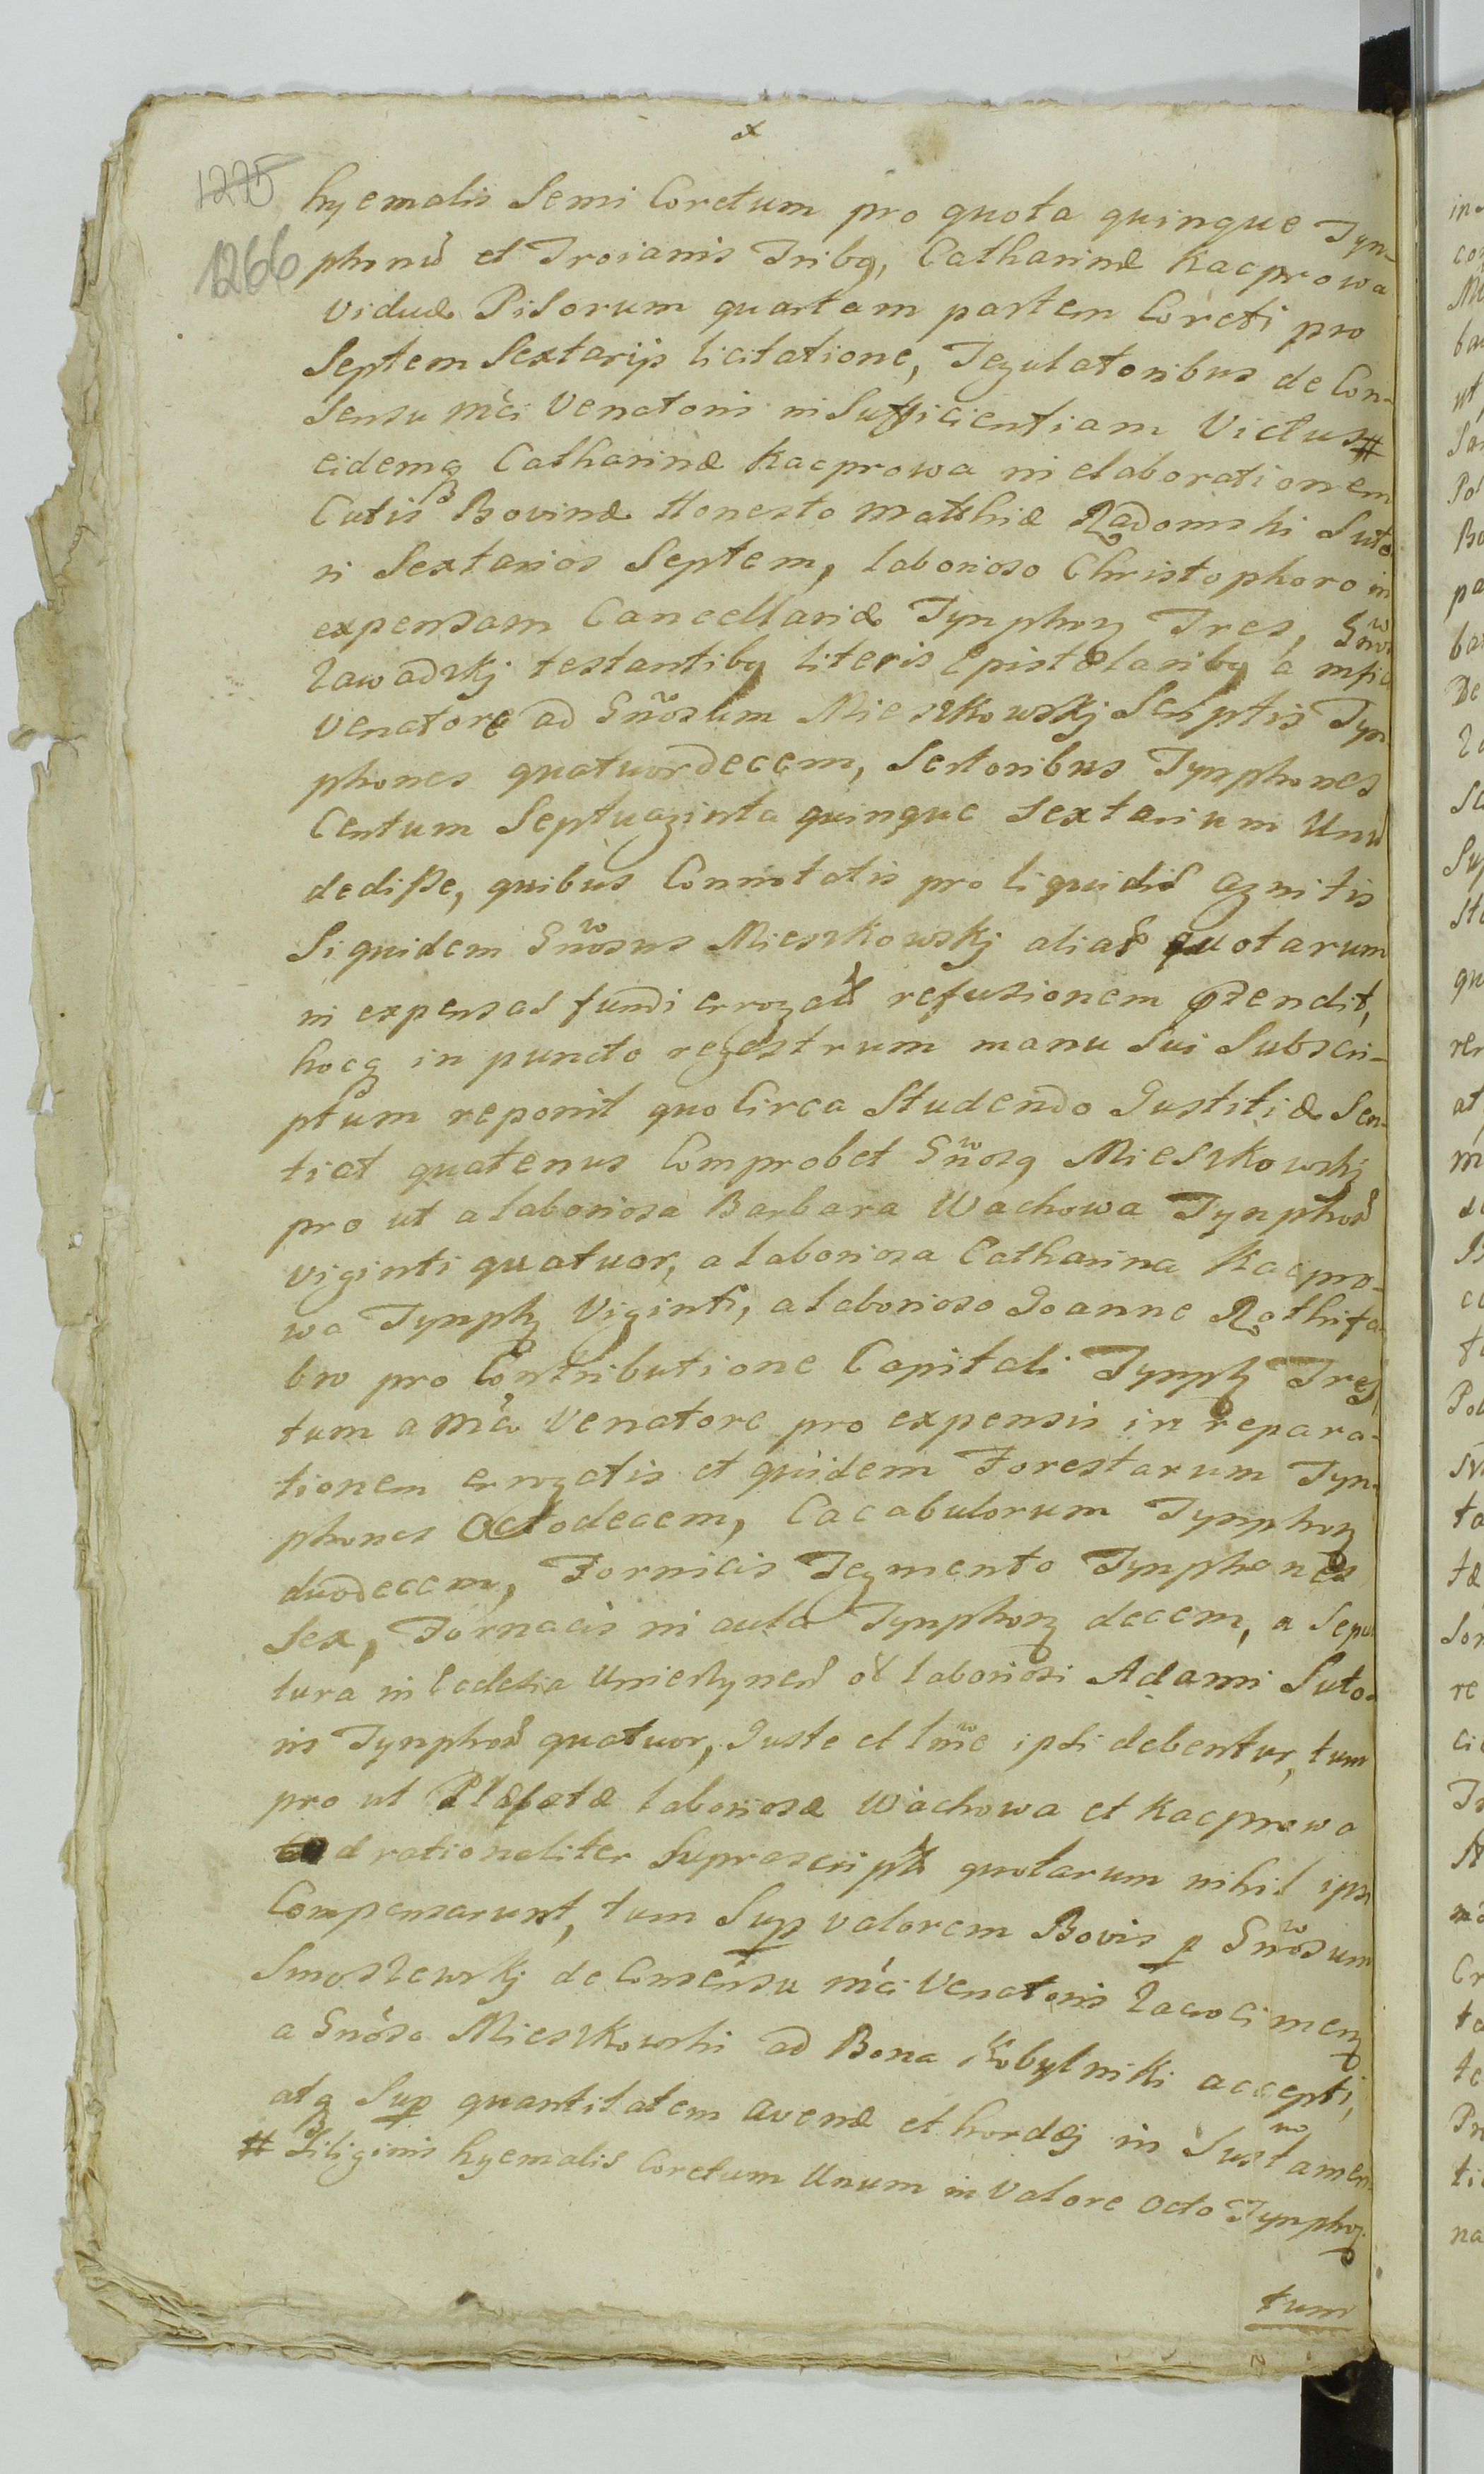 x
1275
1266
hyemalis Semi Coretum pro quota quingue Tyn-
phonũ et Troianis Tribq, Catharinæ Kacprowa
Viduæ Pisorum quartam partem Coreti pro
Septem Sextarijs licitatione, Tegulatoribus de Con-
sensu Mci Venatoris in Sufficientiam Victus #
eidemq Catharinæ Kacprowa in elaborationem
Cutis Bovinæ Honesto Matthiæ Radomski Suto
ri Sextarios Septem, laborioso Christophoro in
expensam Cancellariæ Tynphoz Tres, Gnõ
Zawadzkj testantibq literis Epistolaribq a Mfico
Venatore ad Gnõsum Mieszkowskj Scriptis Tyn-
phones quatuordecem, Sectoribus Tynphones
Centum Septuaginta quinque Sextarium Unũ
dediße, quibus Connotatis pro liquidis agnitis
Siquidem Gnõsus Mieszkowskj alias quotarum
in expensas fundi erogat refusionem prtendit,
hocq in puncto regestrum manu Sui Subscri-
ptum reponit quo Circa Studendo Justitiæ Sen-
tiat quatenus Comprobet Gnõsq Mieszkowskj
pro ut a laboriosa Barbara Wachowa Tynphoñ
viginti quatuor, a laboriosa Catharina Kacpro-
wa Tynphz Viginti, a laborioso Joanne Rothifa-
bro pro Contributione Capitali Tynphz Tres,
tum a Mco Venatore pro expensis in repara-
tionem erogatis et quidem Forestarum Tyn-
phones Octodecem, Cacabulorum Tynphoz
duodecem, Fornicis Tegmento Tynphones
Sex, Fornacis in aula Tynphoz decem, a Sepul
tura in Ecclesia laboriosi Adami Suto-
ris Tynphoñ quatuor, Juste et lmẽ ipsi debentur, tum
pro ut Præfatæ laboriosæ Wachowa et Kacprowa
ad rationaliter Suprascript quotarum nihil ipsi
Compensarunt, tum Sup valorem Bovis p Gnõsum
Smoszewskj de Consensu Mci Venatoris
a Gnõso Mieszkowski ad Bona Kobylniki accepti,
atq Sup quantitatem avenæ et hordej in Sustamen-
# Siliginis hyemalis Coretum Unum in Valore Octo Tynphoz.
tum